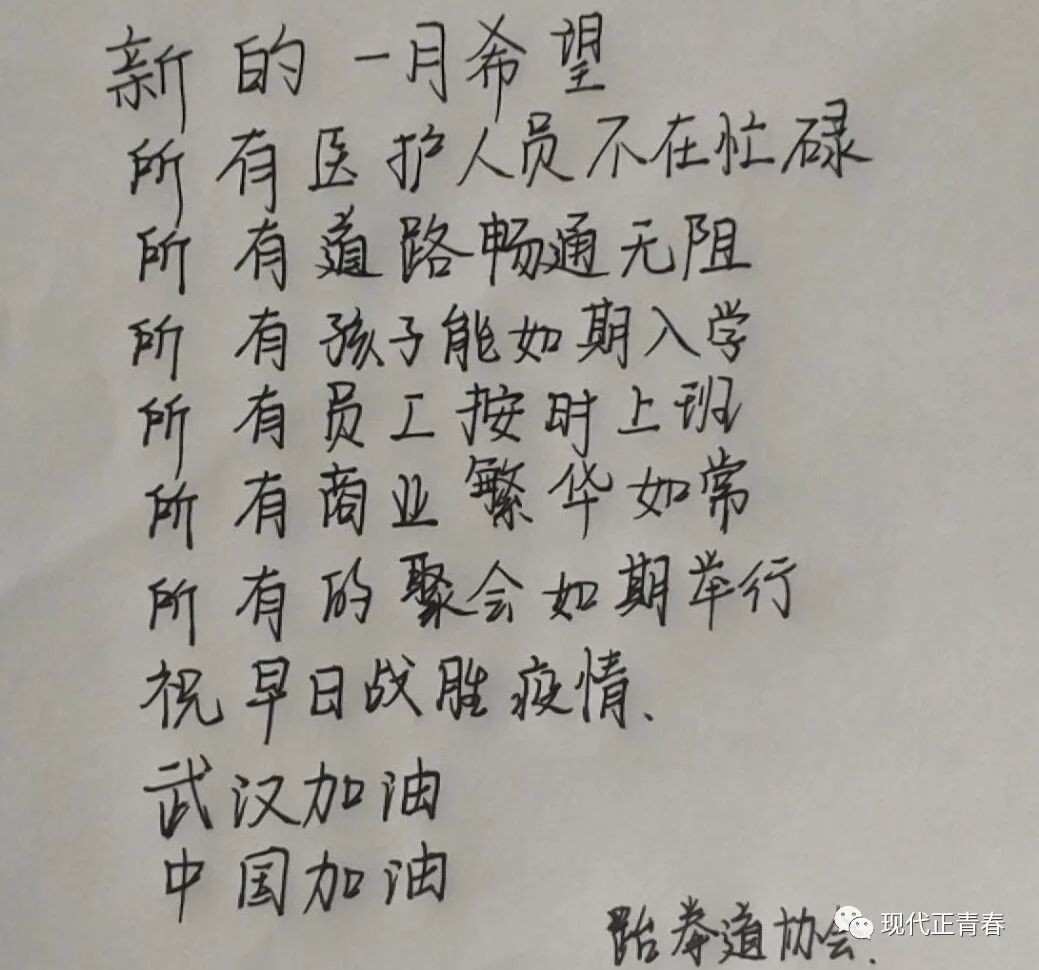 新的一月希望
所有医护人员不在忙碌
所有道路畅通无阻
所有孩子能如期入学
所有员工按时上班
所有商业繁华如常
所有的聚会如期举行
祝早日战胜疫情、
武汉加油
中国加油
跆拳道协会.
现代正青春